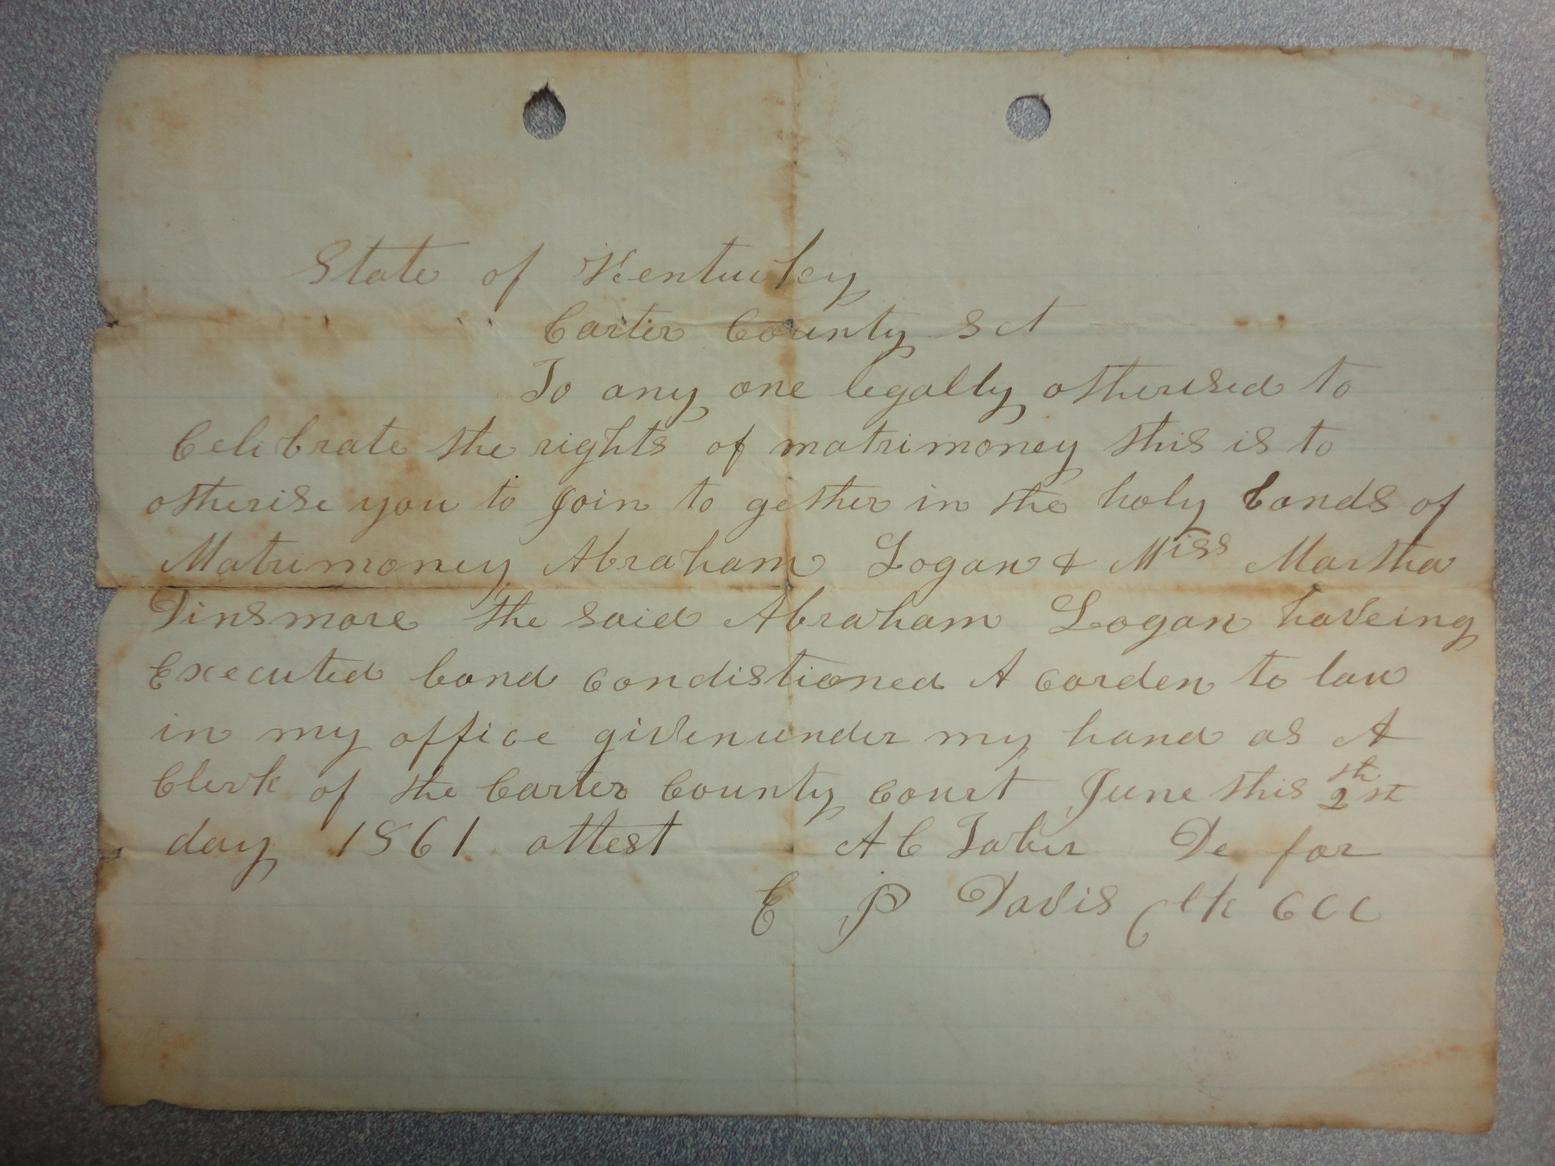 State of Kentuckey
Carter County Sct
To any one legally otherised to
Celebrate the rights of matrimoney this is to
otherise you to Join to gether in the holy bonds of
Matrimoney Abraham Logan & Miss Martha
Dinsmore the said Abraham Logan haveing
Executed bond condistioned A corden to law
in my office given under my hand as A
Clerk of the Carter County court June this 2st th
day 1861 attest A C Tabir De for
E P Davis Clk CCC